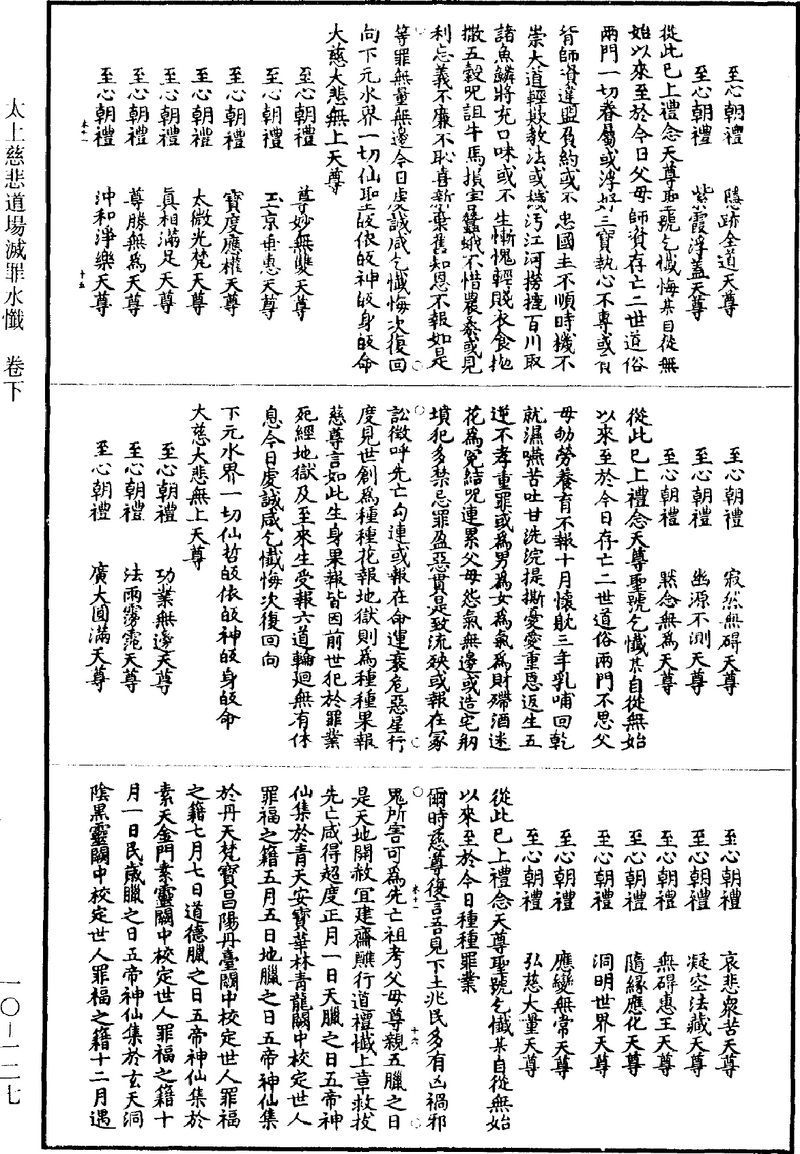 太上慈悲道場滅罪水懺　卷下
一〇—一二七
至心朝禮　隱跡全道天尊
至心朝禮　紫霞浮蓋天尊
從此已上禮念天尊聖號乞懺悔某自從無
始以來至於今日父母師資存亡二世道俗
兩門一切眷屬或浮好三寶執心不專或
背師資違盟負約或不忠國主不順時機不
崇大道輕欺教法或穢污江河撈摝百川取
諸魚鱗將充口味或不生慚愧輕賤衣食拋
撒五穀咒詛牛馬損害蠶蛾不惜農桑或見
利忘義不廉不恥喜新棄舊知恩不報如是
等罪無量無邊今日虔誠咸乞懺悔次復回
向下元水界一切仙聖皈依皈神皈身皈命
大慈大悲無上天尊
至心朝禮　尊妙無雙天尊
至心朝禮　玉京垂惠天尊
至心朝禮　寶度應權天尊
至心朝禮　太微光梵天尊
至心朝禮　真相滿足天尊
至心朝禮　尊勝無為天尊
至心朝禮　沖和淨樂天尊
水十一　十五
至心朝禮　寂然無碍天尊
至心朝禮　幽源不測天尊
至心朝禮　默念無為天尊
從此已上禮念天尊聖號乞懺某自從無始
以來至於今日存亡二世道俗兩門不思父
母劬勞養育不報十月懷躭三年乳哺回乾
就濕嚥苦吐甘洗浣提撕憂愛重恩返生五
逆不孝重罪或為男為女為氣為財殢酒迷
花為冤結咒連累父母怨氣無邊或造宅剏
墳犯多禁忌罪盈惡貫是致流殃或報在冢
訟徵呼先亡勾連或報在命運衰危惡星行
度見世創為種種花報地獄則為種種果報
慈尊言如此生身果報皆因前世犯於罪業
死經地獄及至來生受報六道輪迴無有休
息今日虔誠咸乞懺悔次復回向
下元水界一切仙哲皈依皈神皈身皈命
大慈大悲無上天尊
至心朝禮　功業無邊天尊
至心朝禮　法雨霶霈天尊
至心朝禮　廣大圓滿天尊
至心朝禮　哀悲眾苦天尊
至心朝禮　凝空法藏天尊
至心朝禮　無碍惠王天尊
至心朝禮　隨緣應化天尊
至心朝禮　洞明世界天尊
至心朝禮　應變無常天尊
至心朝禮　弘慈大量天尊
從此已上禮念天尊聖號乞懺某自從無始
以來至於今日種種罪業
爾時慈尊復言吾見下土兆民多有凶禍邪
水十一　十六
鬼所害可為先亡祖考父母尊親五臘之日
是天地開赦宜建齋醮行道禮懺上章救拔
先亡咸得超度正月一日天臘之日五帝神
仙集於青天安寶華林青龍闕中校定世人
罪福之籍五月五日地臘之日五帝神仙集
於丹天梵寶昌陽丹臺闕中校定世人罪福
之籍七月七日道德臘之日五帝神仙集於
素天金門素靈闕中校定世人罪福之籍十
月一日民歲臘之日五帝神仙集於玄天洞
陰黑靈闕中校定世人罪福之籍十二月遇